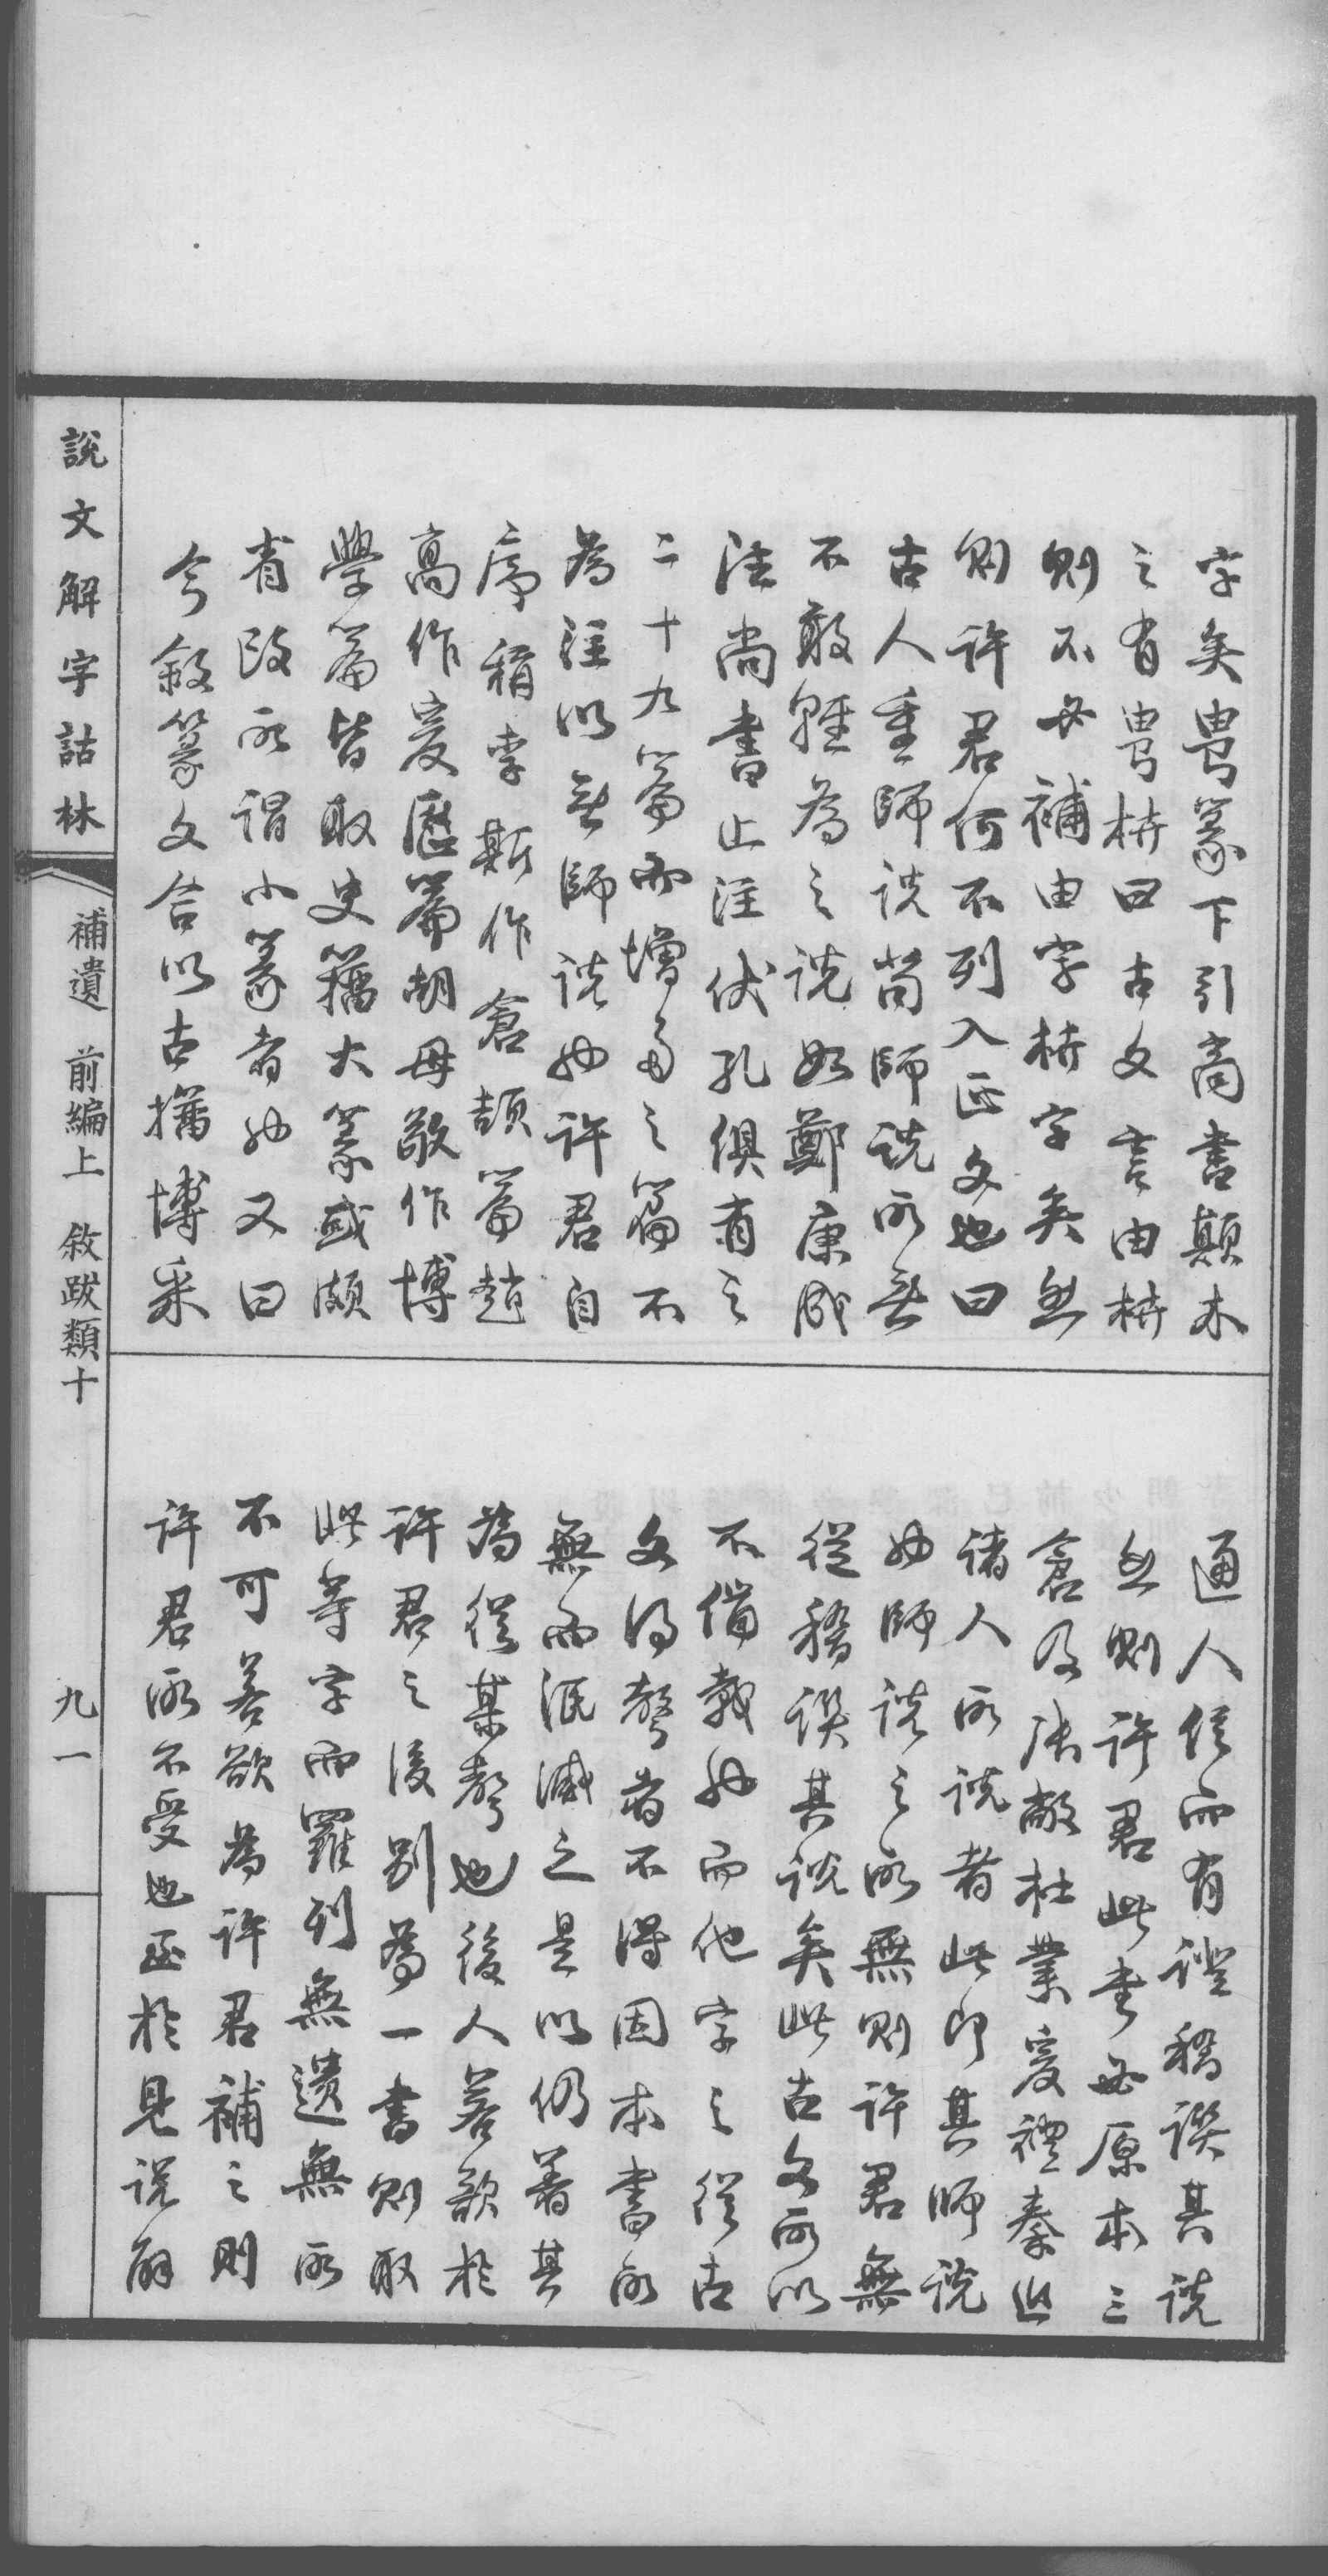 字矣㽕篆下引商書顛木
之有㽕枿曰古文言由枿
則不必補由字枿字矣然
則許君何不列入正文也曰
古人重師說苟師說所無
不敢輕為之說如鄭康成
注尚書止注伏孔俱有之
二十九篇而增多之篇不
為注以無師說也許君自
序稱李斯作倉頡篇趙
高作爰歷篇胡毋敬作博
學篇皆取史籀大篆或頗
省改所謂小篆者也又曰
今敘篆文合以古籀博采
通人信而有證稽譔其說
然則許君此書必原本三
倉及張敞杜業爰禮秦近
諸人所說者此即其師說
也師說之所無則許君無
從稽譔其說矣此古文所以
不備載也而他字之從古
文得聲者不得因本書所
無而泯滅之是以仍著其
為從某聲也後人若欲於
許君之後別為一書則取
此等字而羅列無遺無所
不可若欲為許君補之則
許君所不受也至於見說解
說文解字詁林
補遺 前編上 敘跋類十
九一